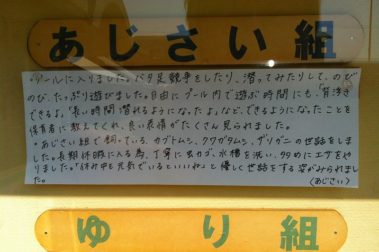 あじさい組
・プールに入りました。バタ足競争をしたり、潜ってみたりして、のび
のび、たっぷり遊びました。自由にプール内で遊ぶ時間にも「背浮き
できるよ」「長い時間潜れるようになったよ」など、できるようになったことを
保育者に教えてくれ、良い表情がたくさん見られました。
・あじさい組で飼っている、カブトムシ、クワガタムシ、ザリガニの世話をしま
した。長期休暇に入る為、丁寧に虫カゴ、水槽を洗い、多めにエサをや
りました。「休み中も元気でいるといいね」と優しく世話をする姿がみられまし
た。
(あじさい)
ゆり組